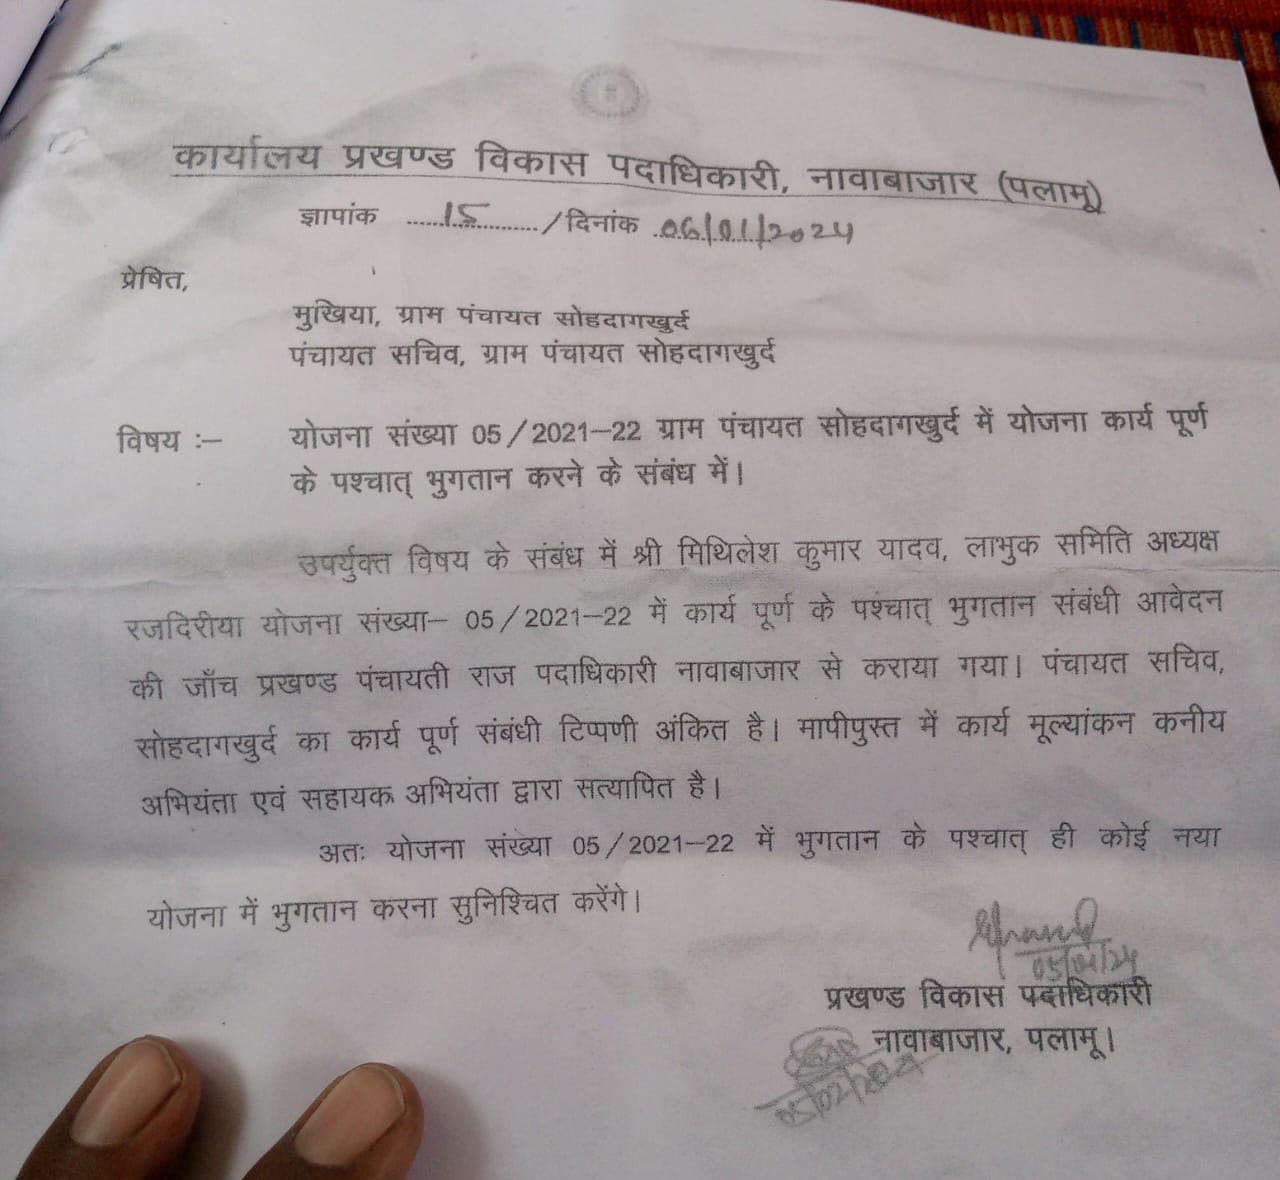 कार्यालय प्रखण्ड विकास पदाधिकारी, नावाबाजार (पलामू)
ज्ञापांक ......15............/दिनांक .06/01/2024
प्रेषित,
मुखिया, ग्राम पंचायत सोहदागखुर्द
पंचायत सचिव, ग्राम पंचायत सोहदागखुर्द
विषय :– योजना संख्या 05/2021–22 ग्राम पंचायत सोहदागखुर्द में योजना कार्य पूर्ण
के पश्चात् भुगतान करने के संबंध में।
उपर्युक्त विषय के संबंध में श्री मिथिलेश कुमार यादव, लाभुक समिति अध्यक्ष
रजदिरीया योजना संख्या– 05/2021–22 में कार्य पूर्ण के पश्चात् भुगतान संबंधी आवेदन
की जाँच प्रखण्ड पंचायती राज पदाधिकारी नावाबाजार से कराया गया। पंचायत सचिव,
सोहदागखुर्द का कार्य पूर्ण संबंधी टिप्पणी अंकित है। मापीपुस्त में कार्य मूल्यांकन कनीय
अभियंता एवं सहायक अभियंता द्वारा सत्यापित है।
अतः योजना संख्या 05/2021–22 में भुगतान के पश्चात् ही कोई नया
योजना में भुगतान करना सुनिश्चित करेंगे।
प्रखण्ड विकास पदाधिकारी
नावाबाजार, पलामू।